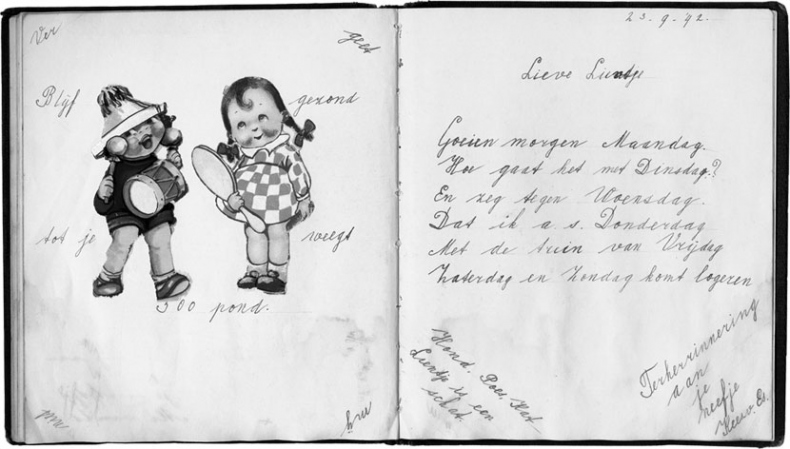 Ver
geet
Blijf
gezond
tot je
weegt
500 pond.
mij
23.9.'42.
Lieve Lientje
Goeien morgen Maandag.
Hoe gaat het met Dinsdag?
En zeg tegen Woensdag.
Dat ik a.s. Donderdag
Met de trein van Vrijdag
Zaterdag en Zondag komt logeren
Hond. Poes. Kat
Lientje is een
schat.
Terherrinnering
aan
je
neefje